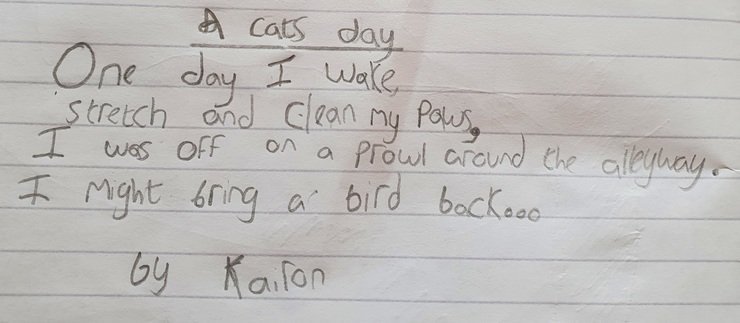 A cats day
One day I wake,
stretch and clean my paws,
I was off on a prowl around the alleyway.
I might bring a bird back...
by Kairon